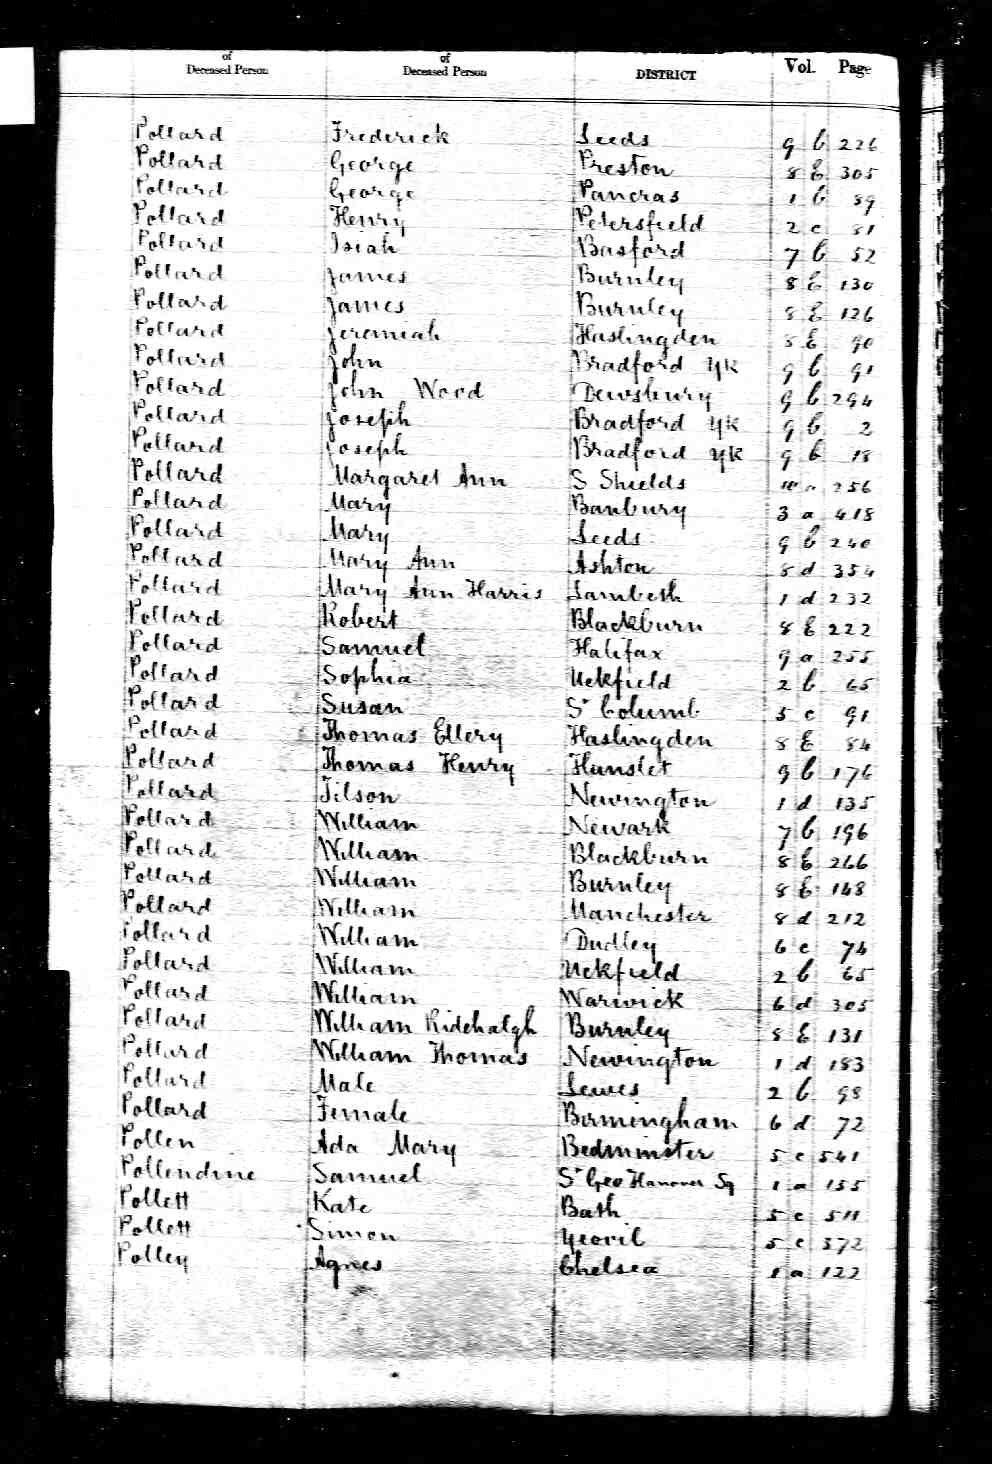 of of
Deceased Person Deceased Person DISTRICT Vol. Page
Pollard Frederick Leeds 9 b 226
Pollard George Preston 8 E 305
Pollard George Pancras 1 b 89
Pollard Henry Petersfield 2 c 81
Pollard Isiah Basford 7 b 52
Pollard James Burnley 8 E 130
Pollard James Burnley 8 E 126
Pollard Jeremiah Haslingden 8 E 90
Pollard John Bradford Yk 9 b 91
Pollard John Wood Dewsbury 9 b 294
Pollard Joseph Bradford Yk 9 b 2
Pollard Joseph Bradford Yk 9 b 18
Pollard Margaret Ann S Shields 10 a 256
Pollard Mary Banbury 3 a 418
Pollard Mary Leeds 9 b 240
Pollard Mary Ann Ashton 8 d 354
Pollard Mary Ann Harris Lambeth 1 d 232
Pollard Robert Blackburn 8 E 222
Pollard Samuel Halifax 9 a 255
Pollard Sophia Uckfield 2 b 65
Pollard Susan St Columb 5 c 91
Pollard Thomas Ellery Haslingden 8 E 84
Pollard Thomas Henry Hunslet 9 b 176
Pollard Tilson Newington 1 d 135
Pollard William Newark 7 b 196
Pollard William Blackburn 8 E 266
Pollard William Burnley 8 E 148
Pollard William Manchester 8 d 212
Pollard William Dudley 6 c 74
Pollard William Uckfield 2 b 65
Pollard William Warwick 6 d 305
Pollard William Ridehalgh Burnley 8 E 131
Pollard William Thomas Newington 1 d 183
Pollard Male Lewes 2 b 98
Pollard Female Birmingham 6 d 72
Pollen Ada Mary Bedminster 5 c 541
Pollendine Samuel St Geo Hanover Sq 1 a 155
Pollett Kate Bath 5 c 511
Pollett Simon Yeovil 5 c 372
Polley Agnes Chelsea 1 a 122